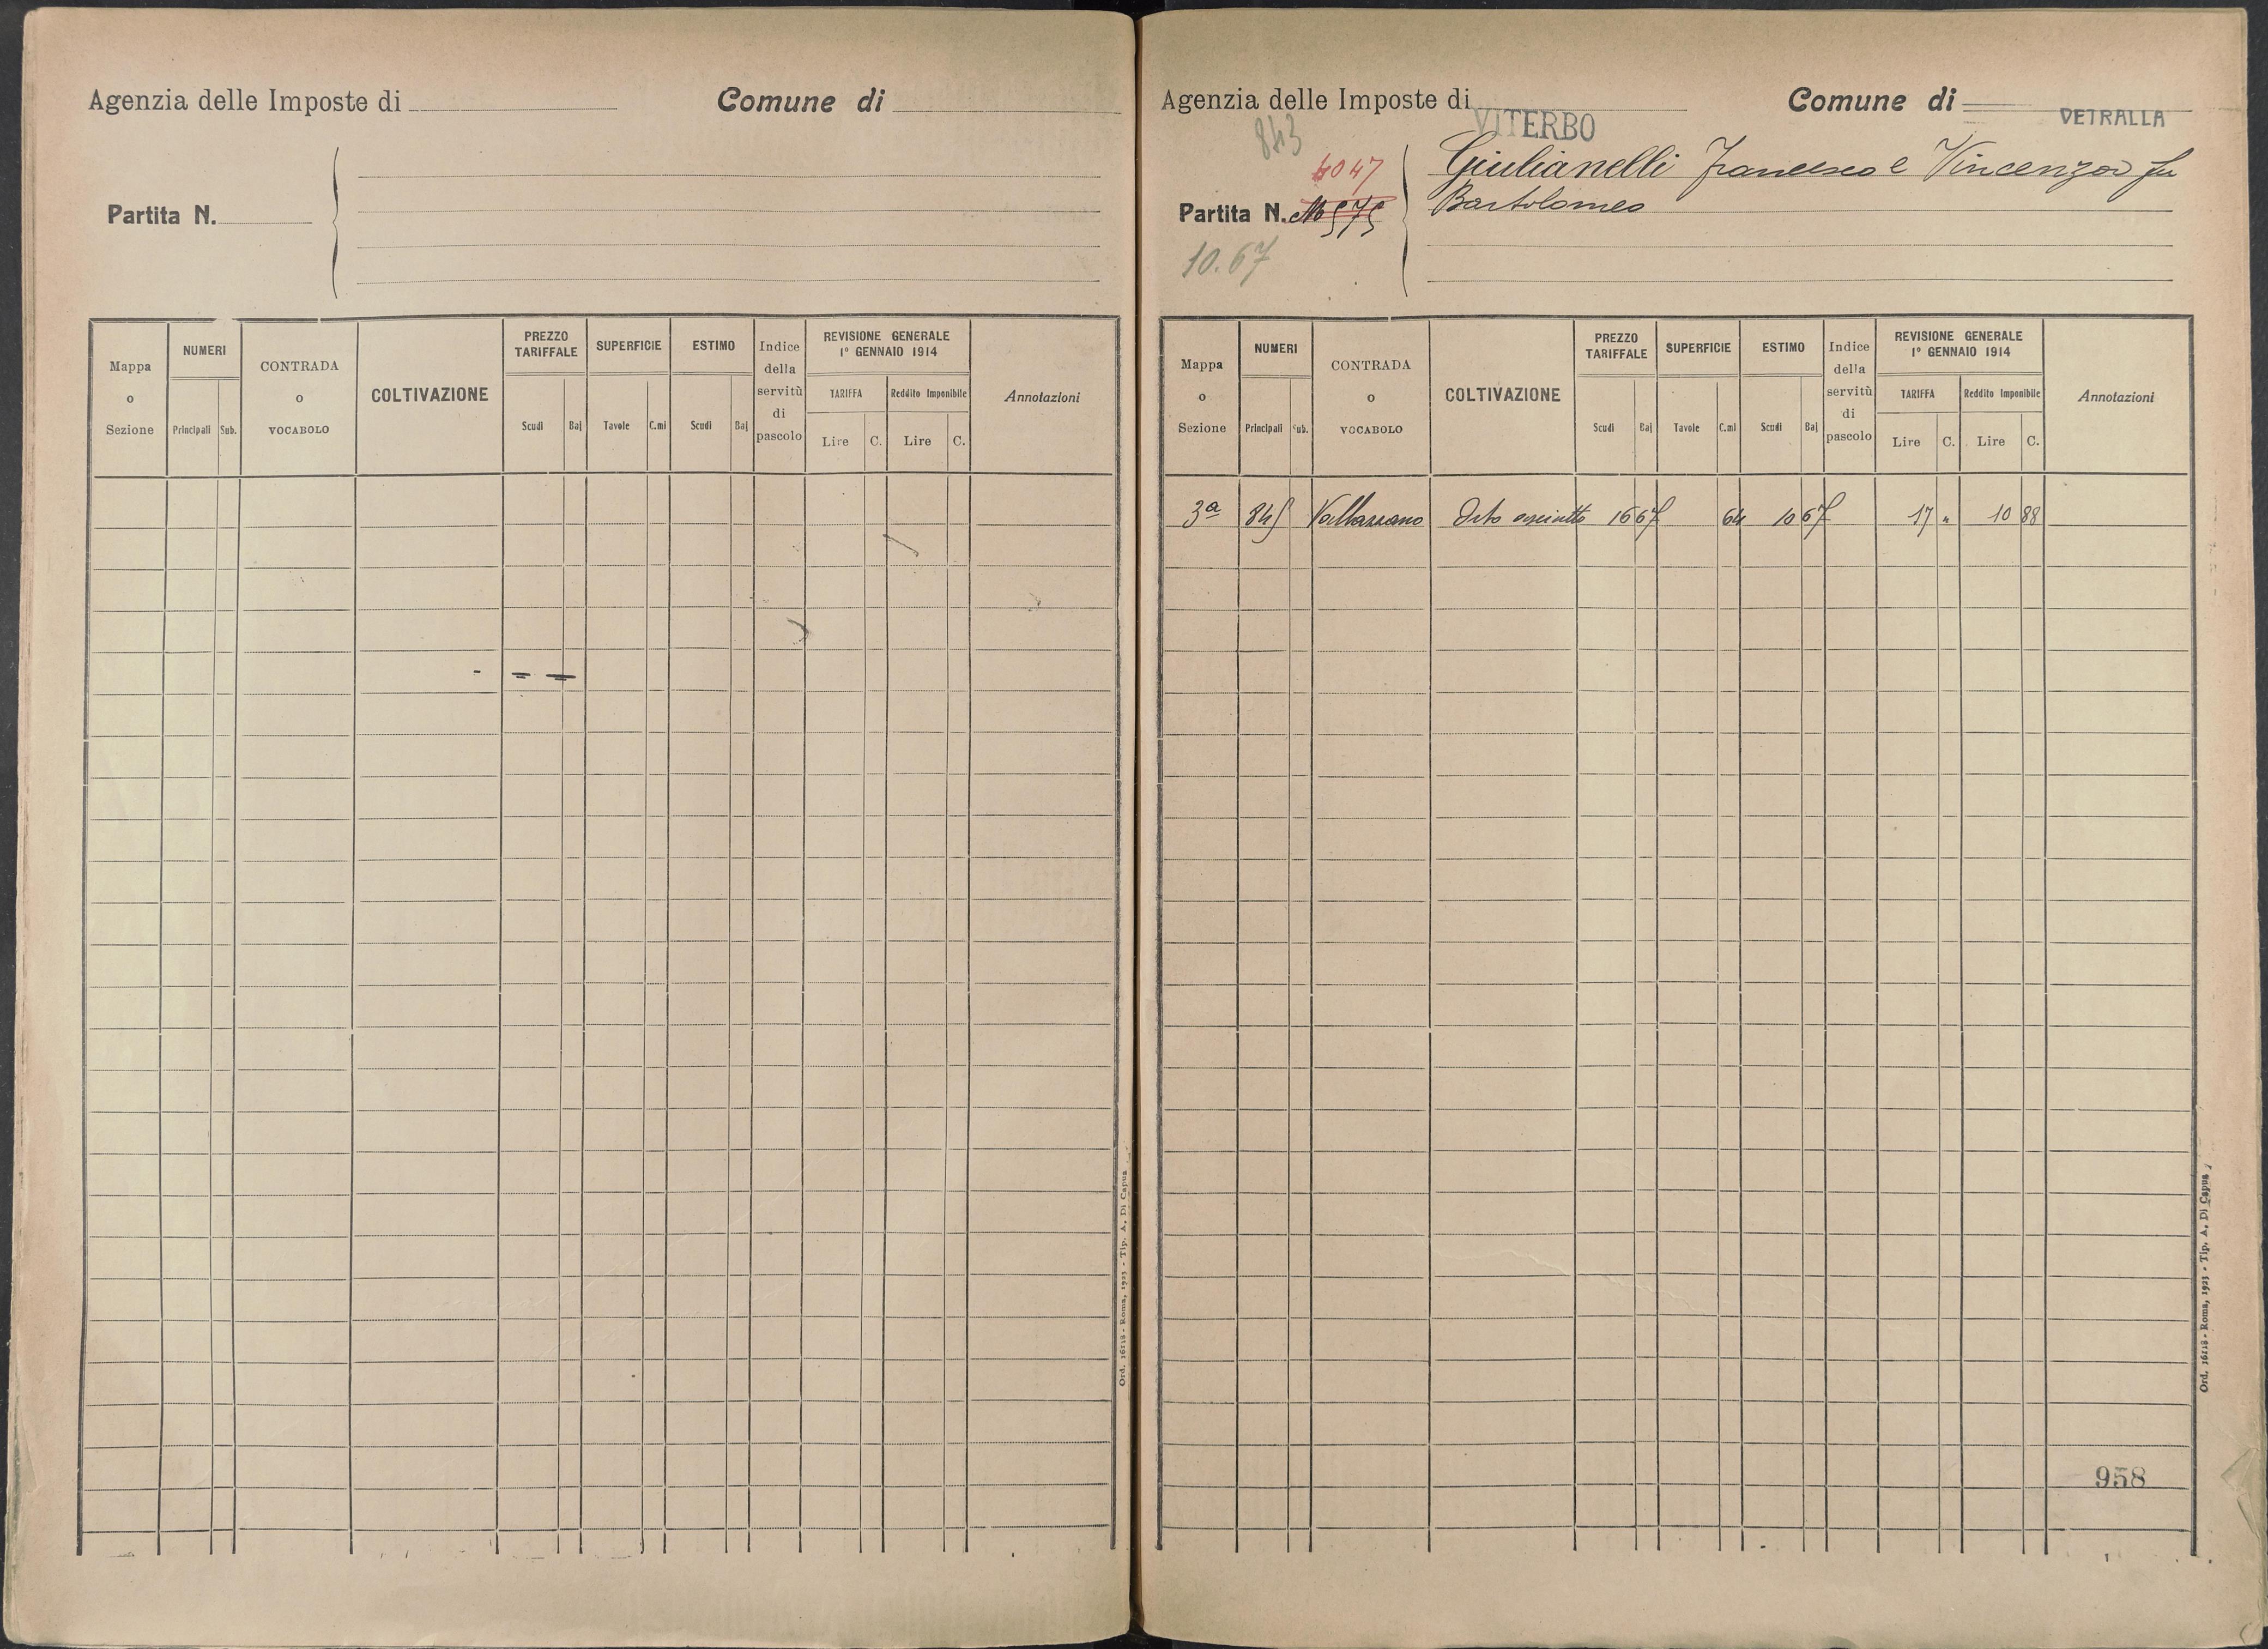 Agenzia delle Imposte di Comune di
Partita N.
Mappa o Sezione NUMERI Principali Sub. CONTRADA o VOCABOLO COLTIVAZIONE PREZZO TARIFFALE Scudi Baj SUPERFICIE Tavole C.mi ESTIMO Scudi Baj Indice della servitù di pascolo REVISIONE GENERALE 1° GENNAIO 1914 TARIFFA Lire C. Reddito Imponibile Lire C. Annotazioni
Ord. 16118 - Roma, 1923 - Tip. A. Di Capua
Agenzia delle Imposte di VITERBO Comune di VETRALLA
843
4047
Giulianelli Francesco e Vincenzo fu
Partita N. Bartolomeo
10.67
Mappa o Sezione NUMERI Principali Sub. CONTRADA o VOCABOLO COLTIVAZIONE PREZZO TARIFFALE Scudi Baj SUPERFICIE Tavole C.mi ESTIMO Scudi Baj Indice della servitù di pascolo REVISIONE GENERALE 1° GENNAIO 1914 TARIFFA Lire C. Reddito Imponibile Lire C. Annotazioni
3a 845 Orto asciutto 16 67 64 10 67 17 " 10 88
958
Ord. 16118 - Roma, 1923 - Tip. A. Di Capua